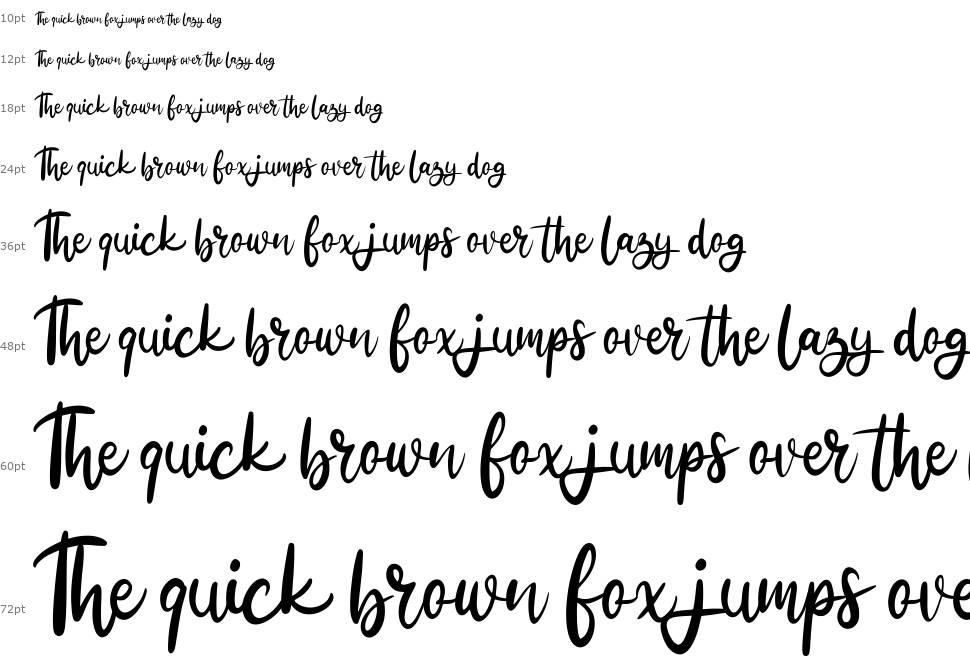 10pt The quick brown fox jumps over the lazy dog
12pt The quick brown fox jumps over the lazy dog
18pt The quick brown fox jumps over the lazy dog
24pt The quick brown fox jumps over the lazy dog
36pt The quick brown fox jumps over the lazy dog
48pt The quick brown fox jumps over the lazy dog
60pt The quick brown fox jumps over the
72pt The quick brown fox jumps ove